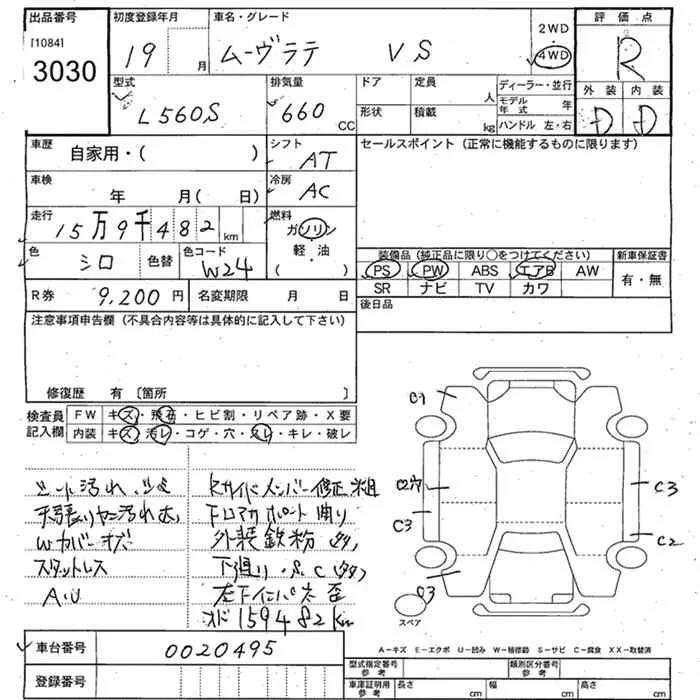 出品番号 初度登録年月 車名・グレード 2WD 評価点
[1084] 19 月 ムーヴラテ VS 4WD R
3030
型式 排気量 ドア 定員 人 ディーラー・並行 外装 内装
L560S 660 CC 形状 積載 kg モデル年式 年 D D
ハンドル 左・右
車歴 自家用・( ) シフト AT セールスポイント (正常に機能するものに限ります)
車検 年 月(日) 冷房 AC
走行 15万9千482 km 燃料 ガソリン
軽・油
( )
色 シロ 色替 色コード W24
装備品 (純正品に限り○をつけてください) 新車保証書
PS PW ABS エアB AW 有・無
SR ナビ TV カワ
R券 9,200円 名変期限 月 日 後日品
注意事項申告欄 (不具合内容等は具体的に記入して下さい)
修復歴 有 [箇所 ]
検査員 FW キズ・飛石・ヒビ割・リペア跡・X要
記入欄 内装 キズ・汚レ・コゲ・穴・スレ・キレ・破レ
シート汚れ
Wカバーキズ
スタットレス
A.U
Rサイドメンバー修正粗
下ロアサポート曲り
外装鉄粉 多
下廻り.S.C(多)
左下インパネ歪
オド159482km
C1
C3
C3
C2
C3
スペア
A-キズ E-エクボ U-凹み W-補修跡 S-サビ C-腐食 XX-取替済
車台番号 0020495
登録番号
型式指定番号 参考 類別区分番号 参考
車庫証明用 参考 長さ cm 幅 cm 高さ cm